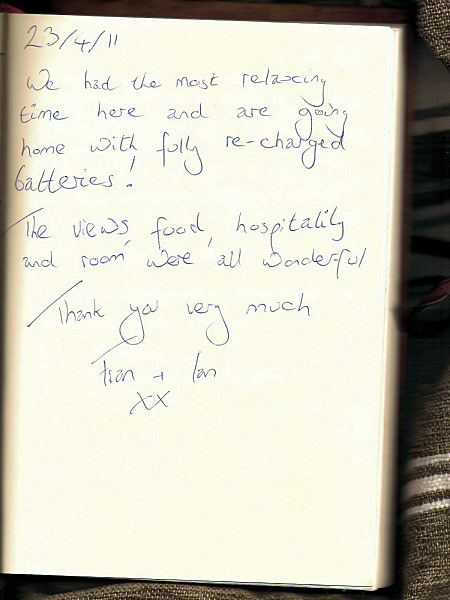 23/4/11
We had the most relaxing
time here and are going
home with fully re-charged
batteries!
The views, food, hospitality
and room were all wonderful
Thank you very much
Fran + Ian
xx